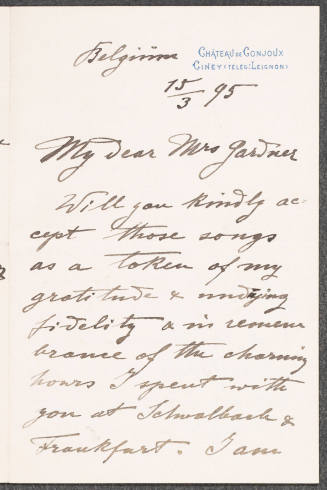 Belgium
CHÂTEAU DE CONJOUX
CINEY (TELEG: LEIGNON)
15/3 95
My dear Mrs Gardner
Will you kindly ac-
cept those songs
as a token of my
gratitude & undying
fidelity & in remem
brance of the charming
hours I spent with
you at Schwalbach &
Frankfurt. I am